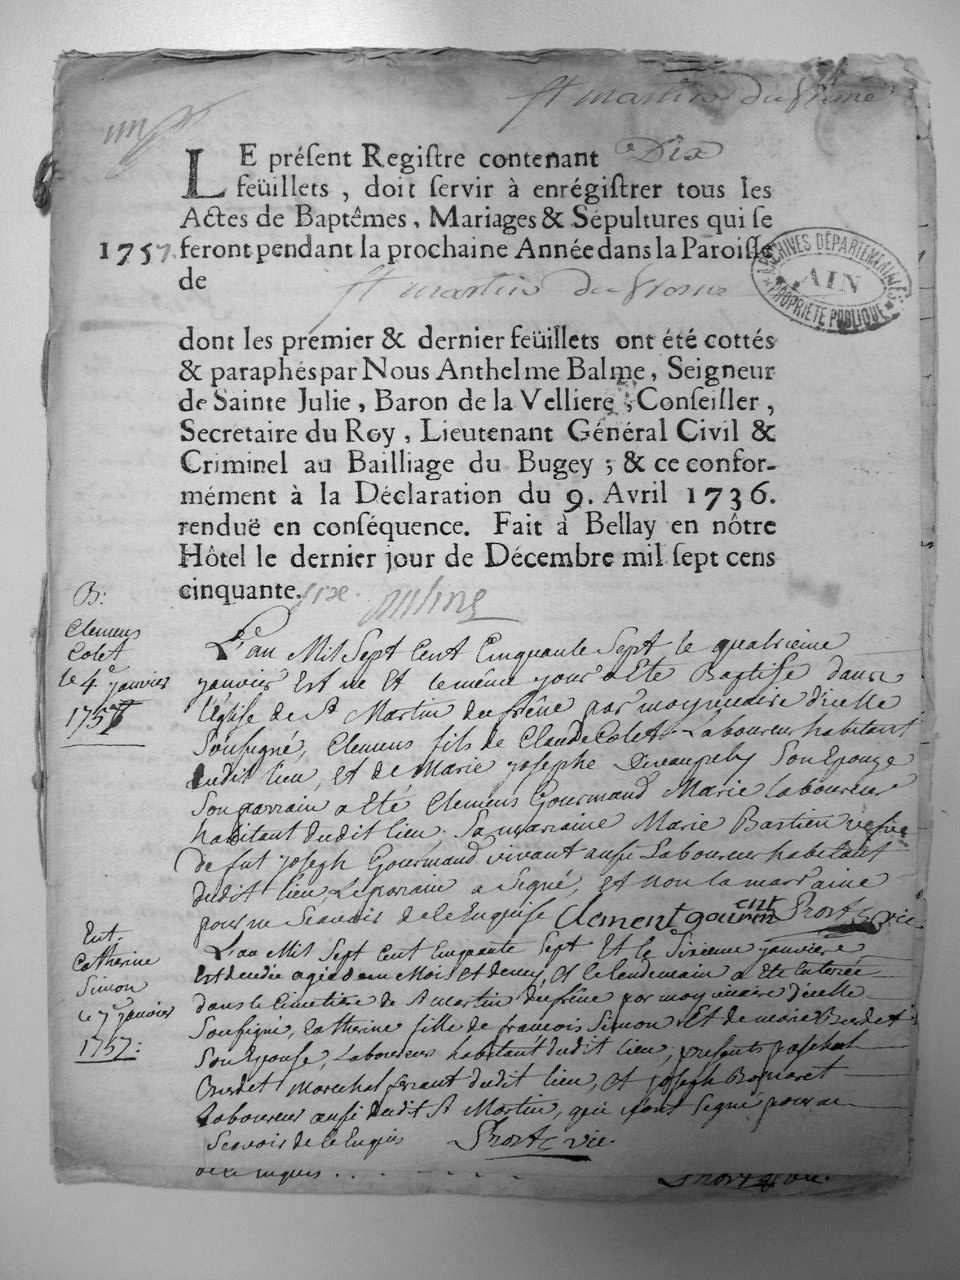 St martin du frêne
LE préſent Regiſtre contenant Dix
feüillets, doit ſervir à enrégiſtrer tous les
Actes de Baptêmes, Mariages & Sépultures qui ſe
1757. feront pendant la prochaine Année dans la Paroiſſe
de St martin du fresne
ARCHIVES DÉPARTEMENTALES
AIN
PROPRIÉTÉ PUBLIQUE
dont les premier & dernier feüillets ont été cottés
& paraphés par Nous Anthelme Balme, Seigneur
de Sainte Julie, Baron de la Velliere, Conſeiller,
Secretaire du Roy, Lieutenant Général Civil &
Criminel au Bailliage du Bugey; & ce confor-
mément à la Déclaration du 9. Avril 1736.
renduë en conſéquence. Fait à Bellay en nôtre
Hôtel le dernier jour de Décembre mil ſept cens
cinquante. six
B:
Clemens
Colet
le 4e janvier
1757
L'an Mil Sept Cent Cinquante Sept le quatrieme
janvier Est né Et le même jour a Eté Baptisé dans
l'église de St Martin du frêne par moy vicaire d'icelle
Sousigné, Clemens fils de Claude Colet Laboureur habitant
dudit lieu, et de Marie josephe Son Epouze
Son parrain a eté Clemens Gourmand Marie laboureur
habitant dudit lieu. Sa marraine Marie Bastien vefve
de fut joseph Gourmand vivant aussi Laboureur habitant
dudit lieu, Le parrain a Signé, et non la marraine
pour ne Scavoir de ce Enquise Clement
Ent.
Catherine
Simon
le 7e janvier
1757:
L'an Mil Sept Cent Cinquante Sept Et le Sixieme janvier
Est decedée agée d'un Mois et demy, et le lendemain a eté Enterrée
dans le Cimetière de St martin du frêne par moy vicaire d'icelle
Sousigné, Catherine fille de francois Simon Et de marie Berdet
Son Epouse, Laboureur habitant dudit lieu, presents
Berdet Marechal ferrant dudit lieu, et joseph
Laboureur aussi dudit St Martin, qui n'ont Signé pour ne
Scavoir de ce Enquis vic.